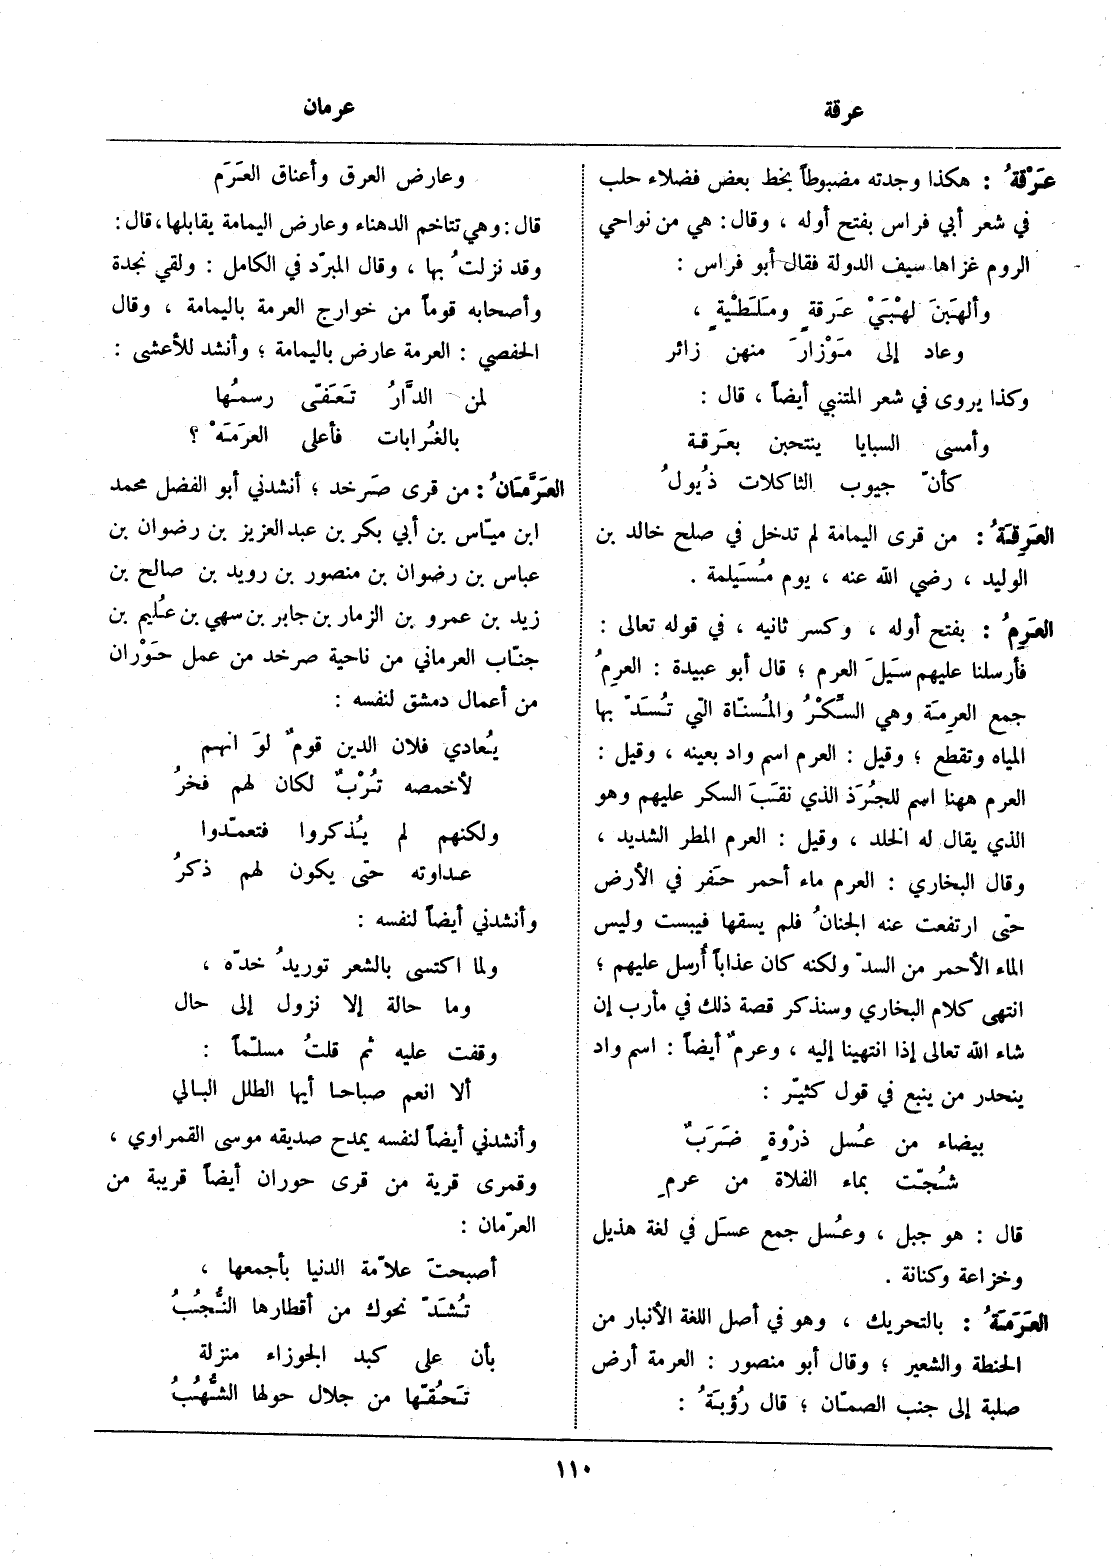 عرقة
عرمان
عَرْقةُ : هكذا وجدته مضبوطاً بخط بعض فضلاء حلب
في شعر أبي فراس بفتح أوله ، وقال : هي من نواحي
الروم غزاها سيف الدولة فقال أبو فراس :
وألهَبنَ لهْبَيْ عَرقةٍ ومَلَطْيةٍ ،
وعاد إلى مَوْزارَ منهن زائر
وكذا يروى في شعر المتنبي أيضاً ، قال :
وأمسى السبايا ينتحبن بعَرقة
كأنّ جيوب الثاكلات ذُيولُ
العَرِقةُ : من قرى اليمامة لم تدخل في صلح خالد بن
الوليد ، رضي الله عنه ، يوم مُسَيلمة .
العَرِمُ : بفتح أوله ، وكسر ثانيه ، في قوله تعالى :
فأرسلنا عليهم سَيلَ العرم ؛ قال أبو عبيدة : العرِمُ
جمع العرِمَة وهي السَّكْرُ والمُسنّاة التي تُسَدّ بها
المياه وتقطع ؛ وقيل : العرم اسم واد بعينه ، وقيل :
العرم ههنا اسم للجُرَذ الذي نقبَ السكر عليهم وهو
الذي يقال له الخلد ، وقيل : العرم المطر الشديد ،
وقال البخاري : العرم ماء أحمر حَفر في الأرض
حتى ارتفعت عنه الجنانُ فلم يسقها فيبست وليس
الماء الأحمر من السدّ ولكنه كان عذاباً أُرسل عليهم ؛
انتهى كلام البخاري وسنذكر قصة ذلك في مأرب إن
شاء الله تعالى إذا انتهينا إليه ، وعرمٌ أيضاً : اسم واد
ينحدر من ينبع في قول كثيّر :
بيضاء من عُسل ذرْوةٍ ضَرَبٌ
شُجّت بماء الفلاة من عرمِ
قال : هو جبل ، وعُسل جمع عسَل في لغة هذيل
وخزاعة وكنانة .
العَرَمَةُ : بالتحريك ، وهو في أصل اللغة الأنبار من
الحنطة والشعير ؛ وقال أبو منصور : العرمة أرض
صلبة إلى جنب الصمّان ؛ قال رُؤبَةُ :
وعارض العرق وأعناق العَرَم
قال : وهي تتاخم الدهناء وعارض اليمامة يقابلها ، قال :
وقد نزلتُ بها ، وقال المبرّد في الكامل : ولقي نجدة
وأصحابه قوماً من خوارج العرمة باليمامة ، وقال
الحفصي : العرمة عارض باليمامة ؛ وأنشد للأعشى :
لمن الدَّارُ تَعَفّى رسمُها
بالغُرابات فأعلى العرَمَهْ ؟
العَرَّمَانُ : من قرى صَرخد ؛ أنشدني أبو الفضل محمد
ابن ميّاس بن أبي بكر بن عبد العزيز بن رضوان بن
عباس بن رضوان بن منصور بن رويد بن صالح بن
زيد بن عمرو بن الزمار بن جابر بن سهي بن عُليم بن
جنّاب العرماني من ناحية صرخد من عمل حَوْران
من أعمال دمشق لنفسه :
يُعادي فلان الدين قومٌ لوَ انهم
لأخمصه تُرْبٌ لكان لهم فخرُ
ولكنهم لم يُذكروا فتعمّدوا
عداوته حتى يكون لهم ذكرُ
وأنشدني أيضاً لنفسه :
ولما اكتسى بالشعر توريدُ خدّه ،
وما حالة إلا نزول إلى حال
وقفت عليه ثم قلتُ مسلّماً :
ألا انعم صباحا أيها الطلل البالي
وأنشدني أيضاً لنفسه يمدح صديقه موسى القمراوي ،
وقمرى قرية من قرى حوران أيضاً قريبة من
العرّمان :
أصبحتَ علاّمة الدنيا بأجمعها ،
تُشَدّ نحوك من أقطارها النُّجُبُ
بأن على كبد الجوزاء منزلة
تَحُفّها من جلال حولها الشُّهُبُ
١١٠